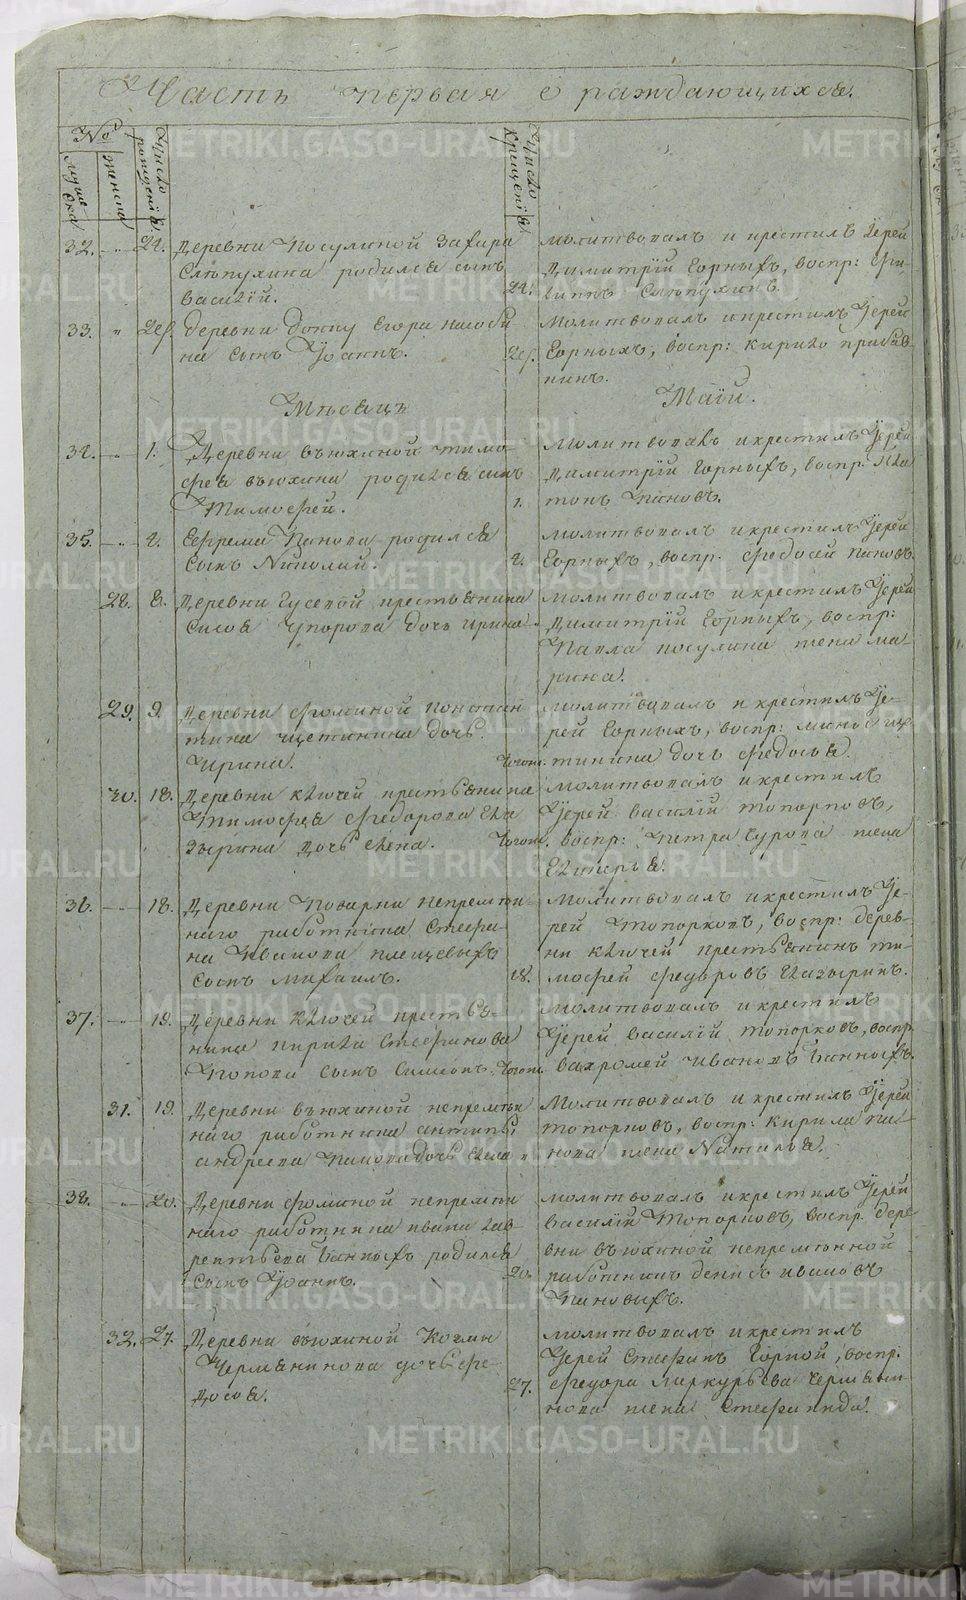 Часть первая о раждающихся.
№
мужеска
женска
Число рождения
Число крещения
32. " 24. Деревни Косулиной Захара
Слепухина родился сынъ
Василій.
24.
Молитвовалъ и крестилъ Іерей
Димитрій Горныхъ, воспр: Фи-
липъ Слепухинъ.
33. " 25. деревни
Егора
на сынъ Іоаннъ.
25.
Молитвовалъ и крестилъ Іерей
Горныхъ, воспр: Кирило
Мѣсяцъ Маій.
34. " 1. Деревни Вьюхиной Тимо-
фея Вьюхина родился сынъ
Тимофей.
1.
Молитвовалъ и крестилъ Іерей
Димитрій Горныхъ, воспр: Пла-
тонъ Пановъ.
35. " 2. Ефрема Панова родился
сынъ Николай.
2.
Молитвовалъ и крестилъ Іерей
Горныхъ, воспр. Федосей Пановъ
28. 8. Деревни Гусевой крестьянина
Сисоя Упорова дочь Ирина
Молитвовалъ и крестилъ Іерей
Димитрій Горныхъ, воспр:
Павла Косулина жена Ма-
рина.
29. 9. Деревни Фоминой Констан
тина Щетинина дочь
Ирина.
тогож.
Молитвовалъ и крестилъ Іе-
рей Горныхъ, воспр:
тинина дочь Федосья.
30. 18. Деревни Ключей крестьянина
Тимофея Федорова Гла
зырина дочь Елена.
тогож.
Молитвовалъ и крестилъ
Іерей Василій Топорковъ,
воспр: Петра Чурова жена
Гликерья.
36. " 18. Деревни Поварни непремѣн-
наго работника Стефа-
на Иванова Плещевыхъ
сынъ Михаилъ.
18.
Молитвовалъ и крестилъ Іе-
рей Топорковъ, воспр: дерев-
ни Ключей крестьянинъ Ти-
мофей Федоровъ Глазыринъ.
37. " 19. Деревни Ключей крестья-
нина Кирила Стефанова
Попова сынъ Симеонъ.
тогож.
Молитвовалъ и крестилъ
Іерей Василій Топорковъ, воспр.
Вахромей Ивановъ Банныхъ.
31. 19. Деревни Вьюхиной непремѣн
наго работника Антипы
Андреева Панова дочь Елена
Молитвовалъ и крестилъ Іерей
Топорковъ, воспр: Кирила Па-
нова жена Наталья.
38. " 20. Деревни Фоминой непремѣн
наго работника Ивана Лав-
рентьева Банныхъ родился
сынъ Іоаннъ.
20.
Молитвовалъ и крестилъ Іерей
Василій Топорковъ, воспр. дере
вни Вьюхиной непремѣнной
работникъ Денисъ Ивановъ
Пановыхъ.
32. 27. Деревни Вьюхиной Козмы
Черманинова дочь Фе-
досья.
27.
Молитвовалъ и крестилъ
Іерей Стефанъ Горной, воспр.
Федора Меркурьева Чермани-
нова жена Стефанида.